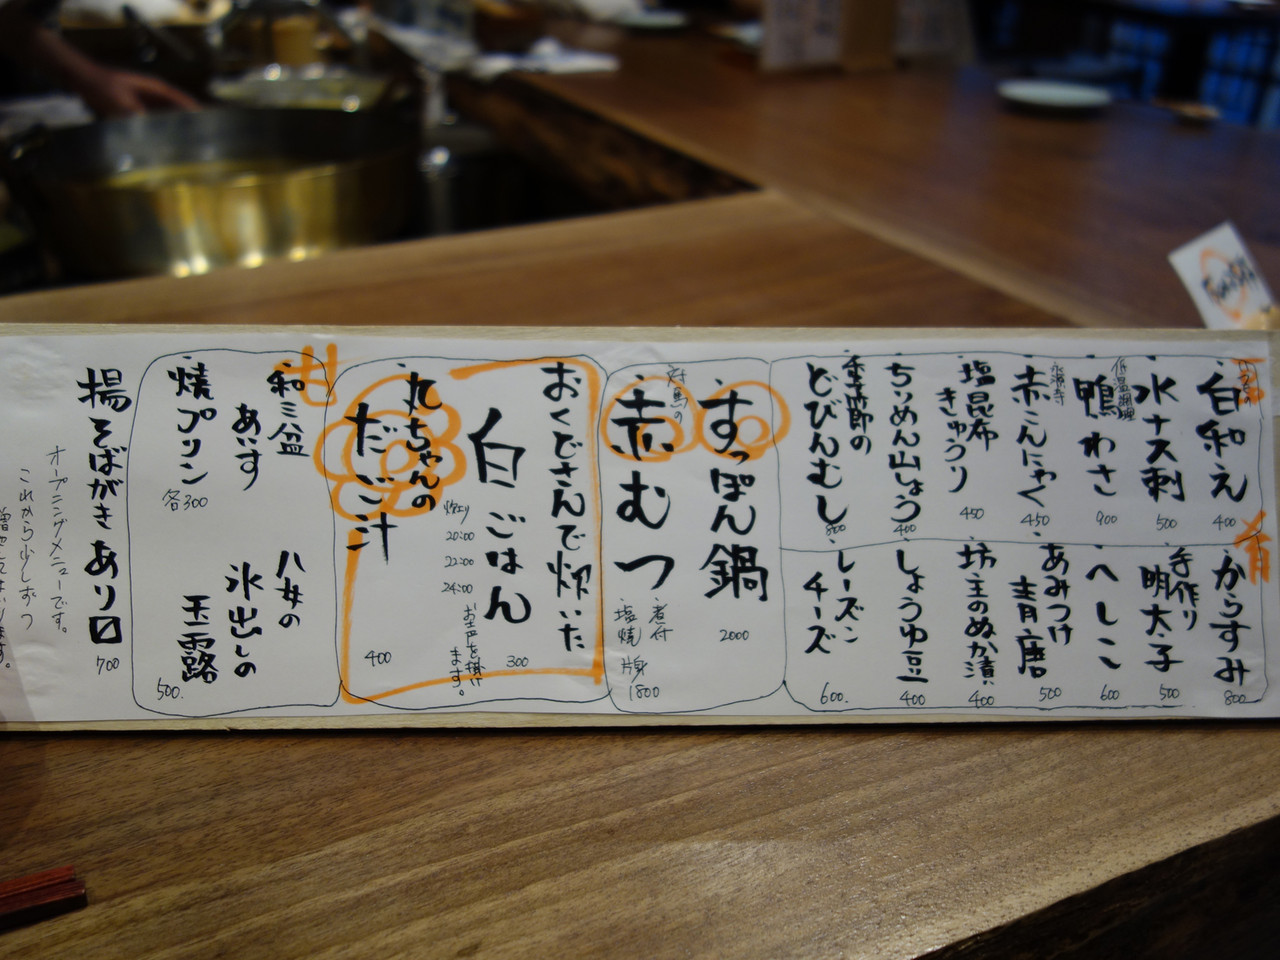 白和え
400
水ナス刺
500
低温調理
鴨わさ
900
永源寺
赤こんにゃく
450
塩昆布
きゅうり
450
ちりめん山しょう
400
季節の
どびんむし
800
からすみ
800
手作り
明太子
500
へしこ
600
あみつけ
青唐
500
坊主のぬか漬
400
しょうゆ豆
400
レーズン
チーズ
600.
すっぽん鍋
2000
対馬の
赤むつ
煮付
塩焼
1800
おくどさんで炊いた
白ごはん
300
20:00
22:00
24:00
ます。
丸ちゃんの
だご汁
400
和三盆
あいす
焼プリン
各300
八女の
氷出しの
玉露
500.
揚そばがきあり〼
700
オープニングメニューです。
これから少しずつ